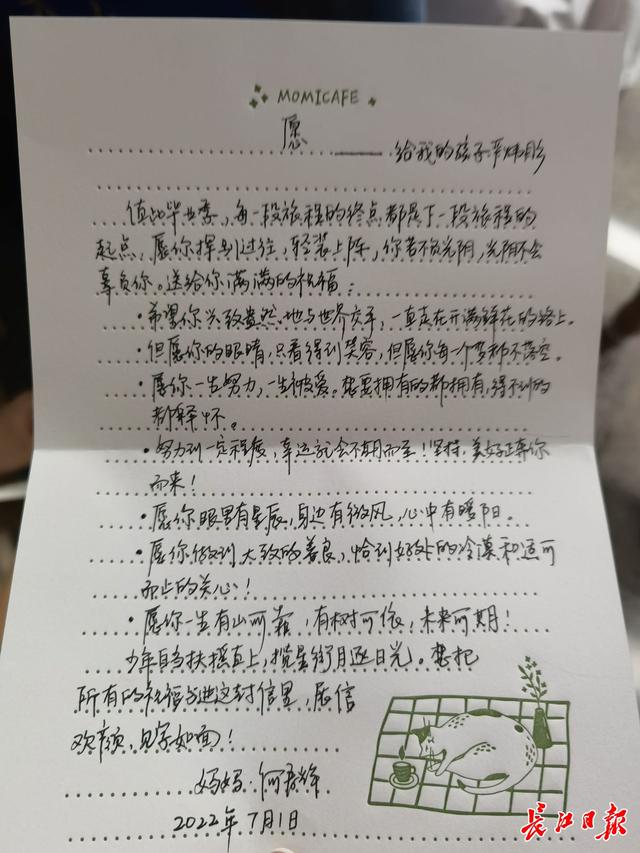 MOMICAFE
愿
——给我的孩子
值此毕业季，每一段旅程的终点都是下一段旅程的
起点，愿你挥别过往，轻装上阵，你若不负光阴，光阴不会
辜负你。送给你满满的祝福：
·希望你兴致盎然地与世界交手，一直走在开满鲜花的路上。
·但愿你的眼睛，只看得到笑容，但愿你每一个梦都不落空。
·愿你一生努力，一生被爱。想要拥有的都拥有，得不到的
都释怀。
·努力到一定程度，幸运就会不期而至！坚持，美好正奔你
而来！
·愿你眼里有星辰，身边有微风，心中有暖阳。
·愿你做到大致的善良，恰到好处的冷漠和适可
而止的关心！
·愿你一生有山可靠，有树可依，未来可期！
少年自当扶摇直上，揽星衔月逐日光。想把
所有的祝福书进这封信里，展信
欢颜，见字如面！
妈妈：何
2022年7月1日
长江日报